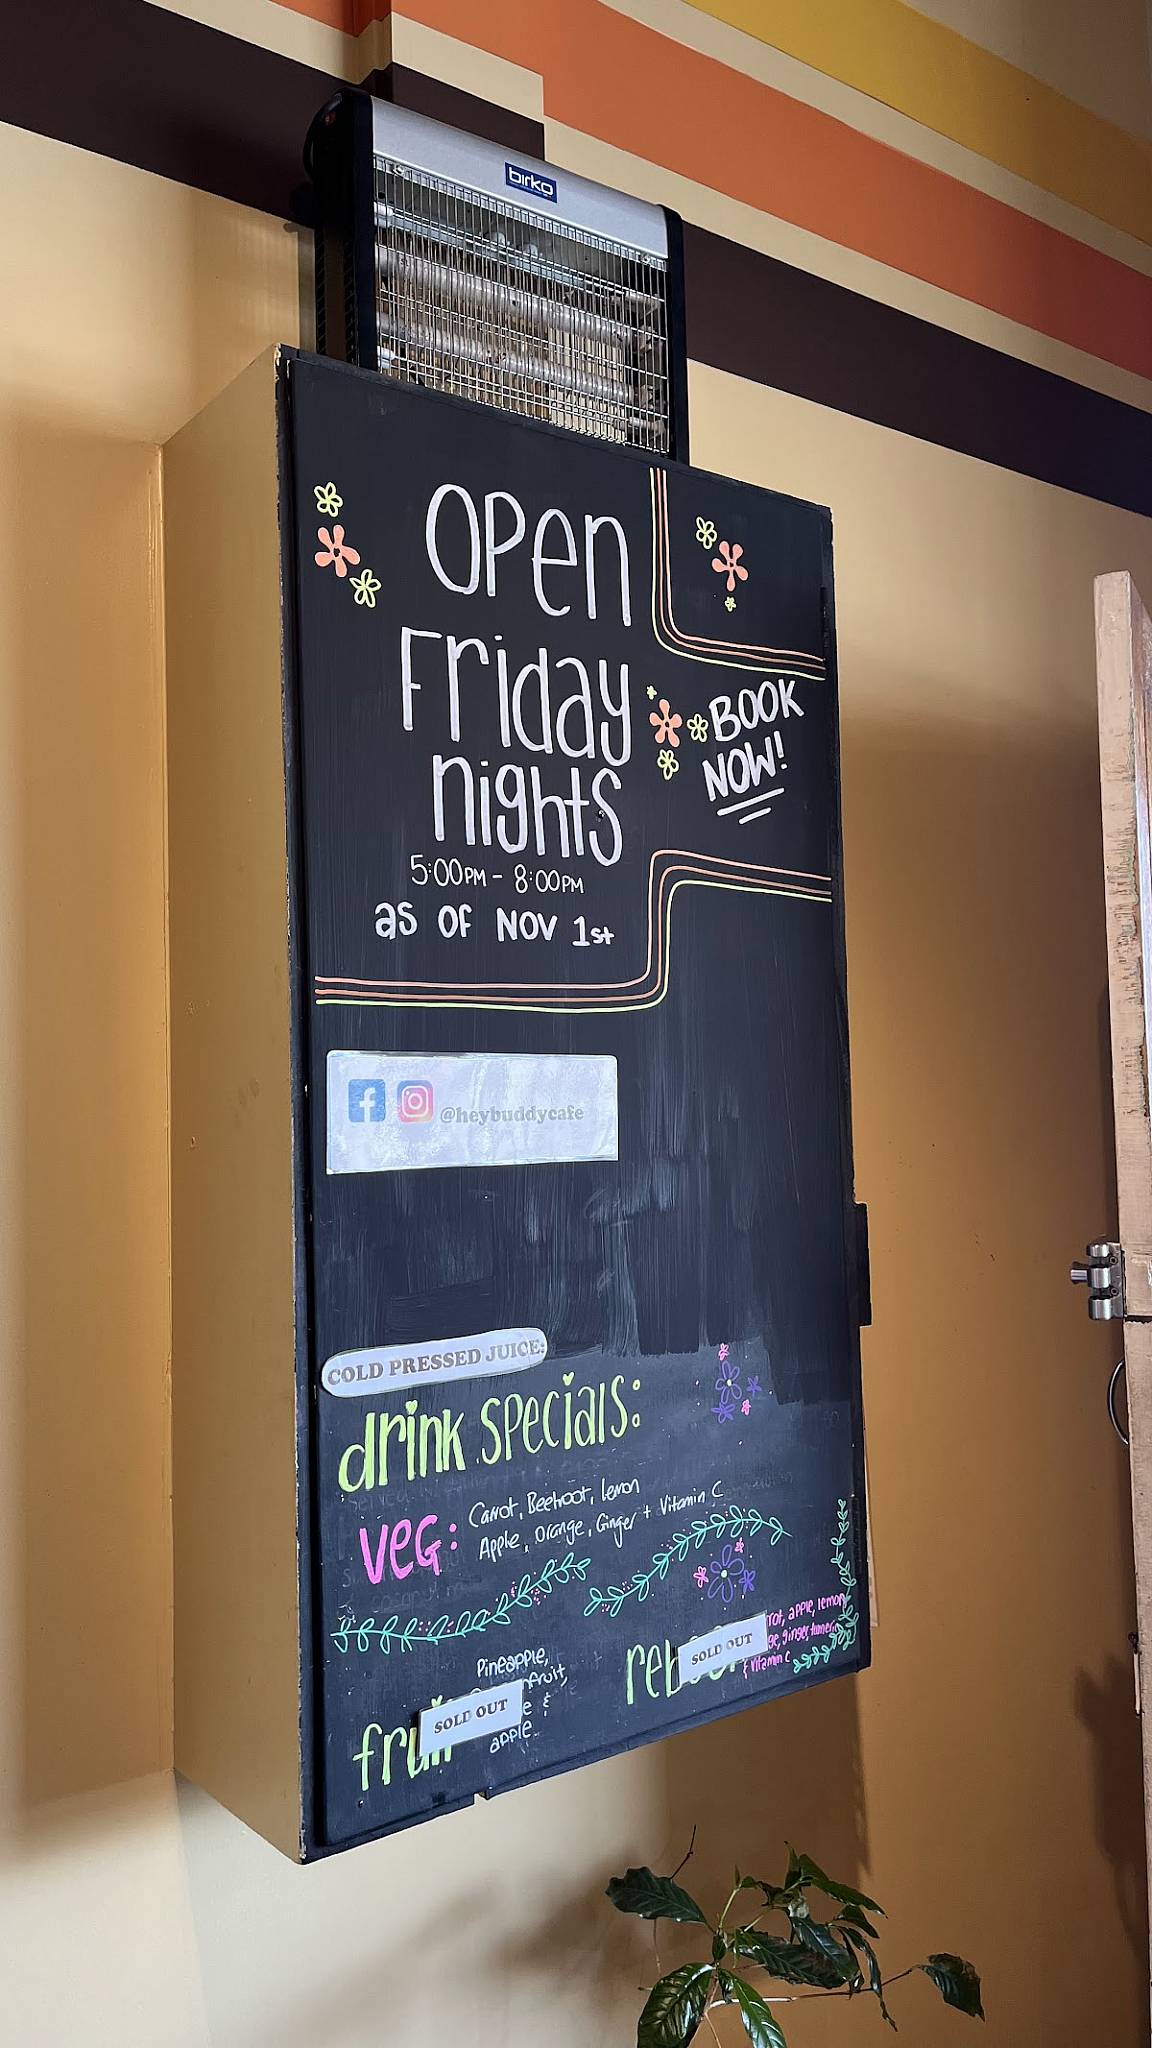 birko
OPen
Friday
nights
5:00PM - 8:00PM
as OF NOV 1st
BOOK
NOW!
@heybuddycafe
COLD PRESSED JUICE:
drink specials:
VeG:
Carrot, Beetroot, lemon
Apple, Orange, Ginger + Vitamin C
Pineapple,
apple
SOLD OUT
SOLD OUT
apple, lemon
ginger, turmeric
& Vitamin C